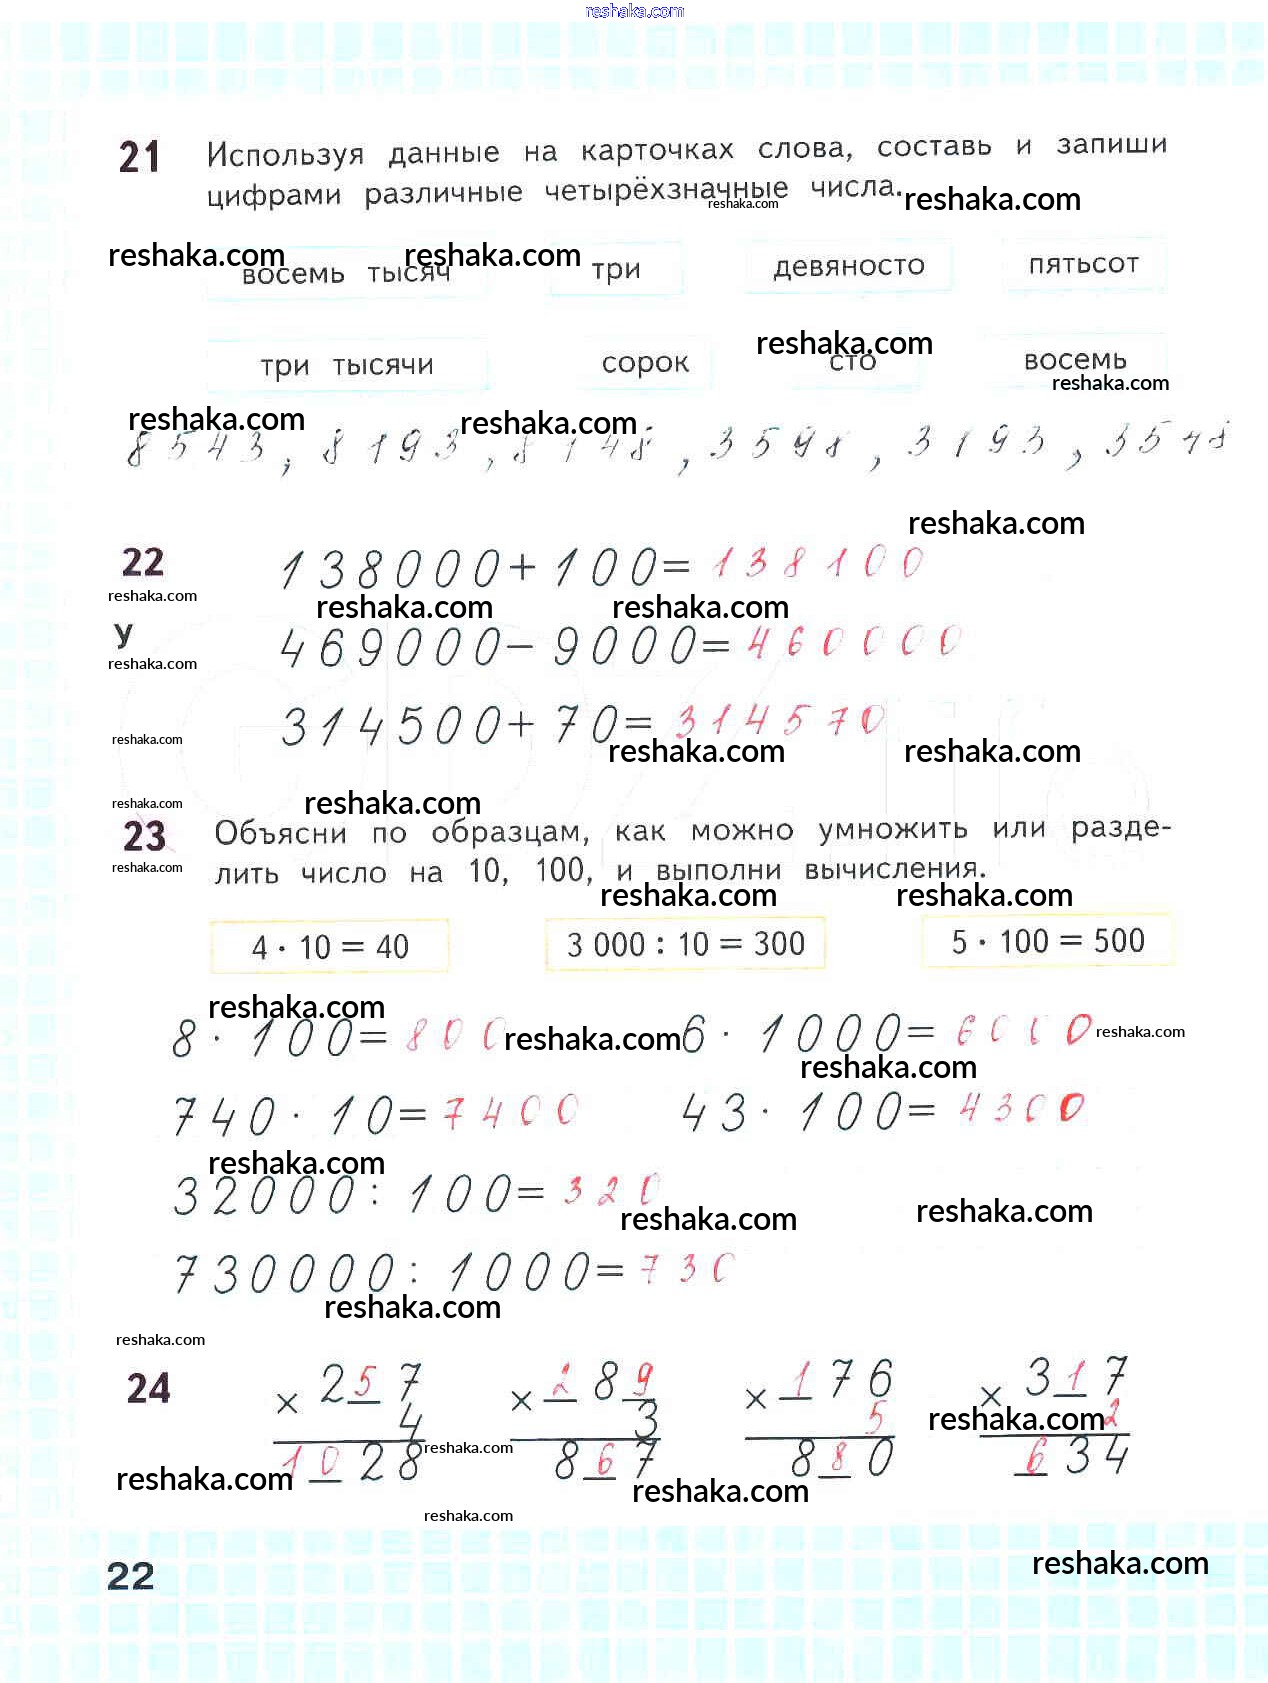 reshaka.com
21 Используя данные на карточках слова, составь и запиши
цифрами различные четырёхзначные числа.
reshaka.com reshaka.com
reshaka.com reshaka.com
восемь тысяч три девяносто пятьсот
reshaka.com
три тысячи сорок сто восемь
reshaka.com
reshaka.com reshaka.com
8543, 8193, 8148, 3598, 3193, 3548
reshaka.com
22 138000+100=138100
reshaka.com reshaka.com reshaka.com
у 469000-9000=460000
reshaka.com
314500+70=314570
reshaka.com reshaka.com reshaka.com
reshaka.com reshaka.com
23 Объясни по образцам, как можно умножить или разде-
лить число на 10, 100, и выполни вычисления.
reshaka.com reshaka.com reshaka.com
4 · 10 = 40 3 000 : 10 = 300 5 · 100 = 500
reshaka.com
8 · 100=800 reshaka.com 6 · 1000=6000 reshaka.com
reshaka.com
740 · 10=7400 43 · 100=4300
reshaka.com
32000:100=320
reshaka.com reshaka.com
730000:1000=730
reshaka.com
reshaka.com
24 × 257 × 289 × 176 × 317
4 3 5 reshaka.com 2
1028 reshaka.com 867 880 634
reshaka.com reshaka.com
reshaka.com
22 reshaka.com